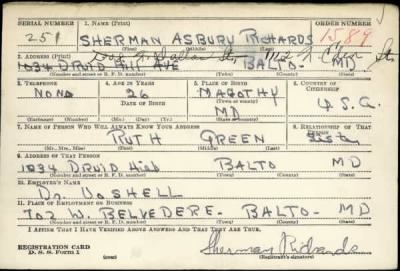 SERIAL NUMBER 1. NAME (Print) ORDER NUMBER
251 SHERMAN ASBURY RICHARDS 1589
(First) (Middle) (Last)
2. ADDRESS (Print)
1034 DRUID Hill AVE BALTO- MD
(Number and street or R. F. D. number) (Town) (County) (State)
3. TELEPHONE 4. AGE IN YEARS 5. PLACE OF BIRTH 6. COUNTRY OF CITIZENSHIP
NONE 26 MAGOTHY
DATE OF BIRTH MD U.S.A.
(Exchange) (Number) (Mo.) (Day) (Yr.) (Town) (County) (State or country)
7. NAME OF PERSON WHO WILL ALWAYS KNOW YOUR ADDRESS 8. RELATIONSHIP OF THAT PERSON
RUTH GREEN
(Mr., Mrs., Miss) (First) (Middle) (Last)
9. ADDRESS OF THAT PERSON
1034 DRUID Hill BALTO MD
(Number and street or R. F. D. number) (Town) (County) (State)
10. EMPLOYER'S NAME
DR. VOSHELL
11. PLACE OF EMPLOYMENT OR BUSINESS
702 W. BELVEDERE- BALTO- MD
(Number and street or R. F. D. number) (Town) (County) (State)
I AFFIRM THAT I HAVE VERIFIED ABOVE ANSWERS AND THAT THEY ARE TRUE.
REGISTRATION CARD Sherman Richards
D. S. S. Form 1 (Registrant's signature)